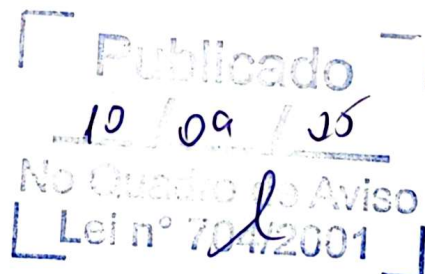 Publicado
10 / 09 / 25
No Quadro de Aviso
Lei nº 704/2001